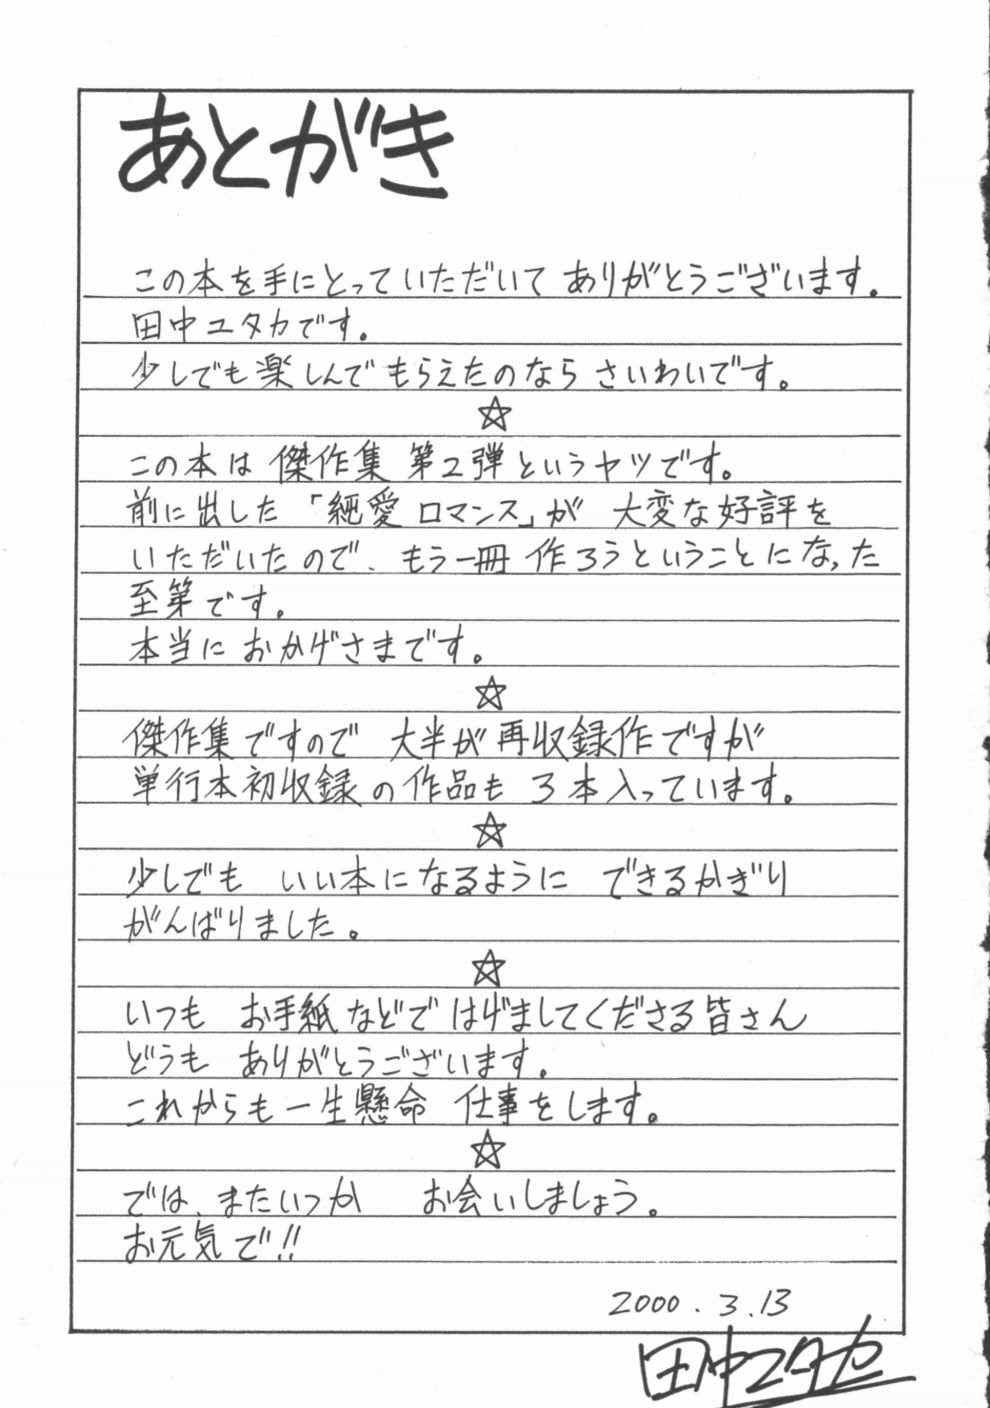 あとがき
この本を手にとっていただいて ありがとうございます。
田中ユタカです。
少しでも楽しんでもらえたのなら さいわいです。
☆
この本は 傑作集 第2弾というヤツです。
前に出した 「純愛ロマンス」が 大変な好評を
いただいたので、もう一冊 作ろうということになった
至第です。
本当に おかげさまです。
☆
傑作集ですので 大半が 再収録作ですが
単行本初収録の作品も 3本入っています。
☆
少しでも いい本になるように できるかぎり
がんばりました。
☆
いつも お手紙などで はげましてくださる皆さん
どうも ありがとうございます。
これからも一生懸命 仕事をします。
☆
では、またいつか お会いしましょう。
お元気で!!
2000.3.13
田中ユタカ